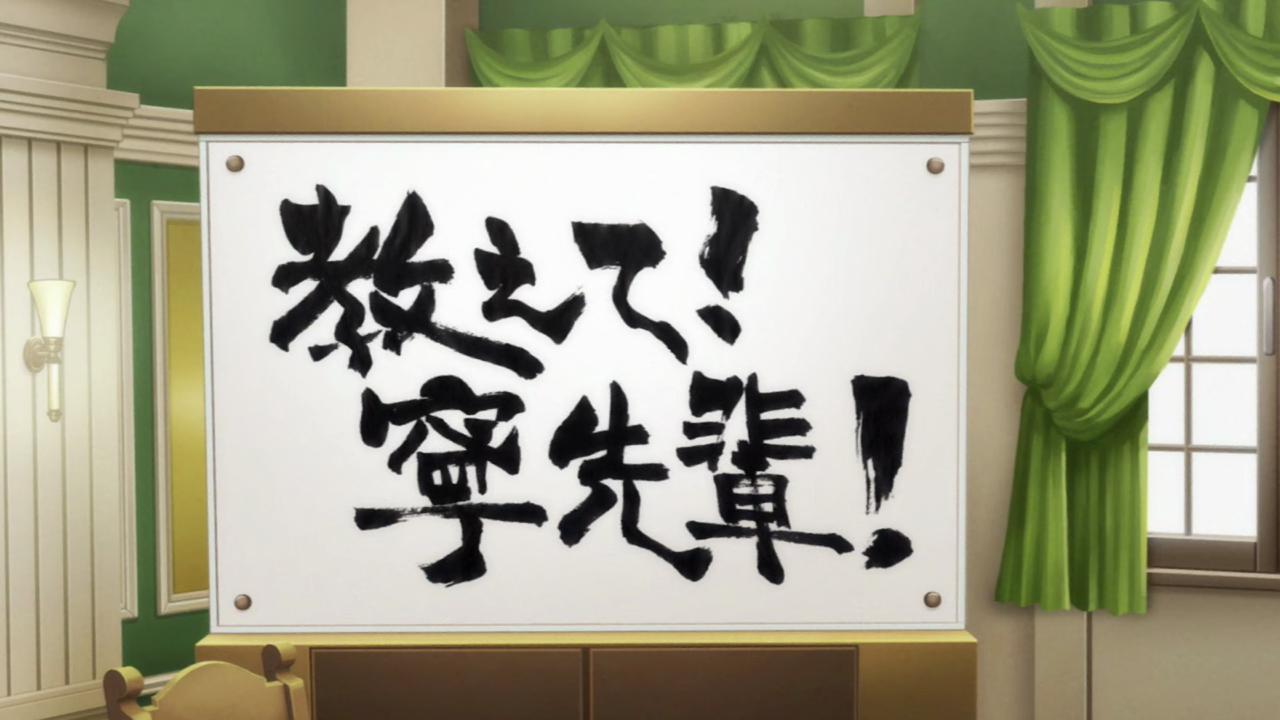 教えて!
寧先輩!